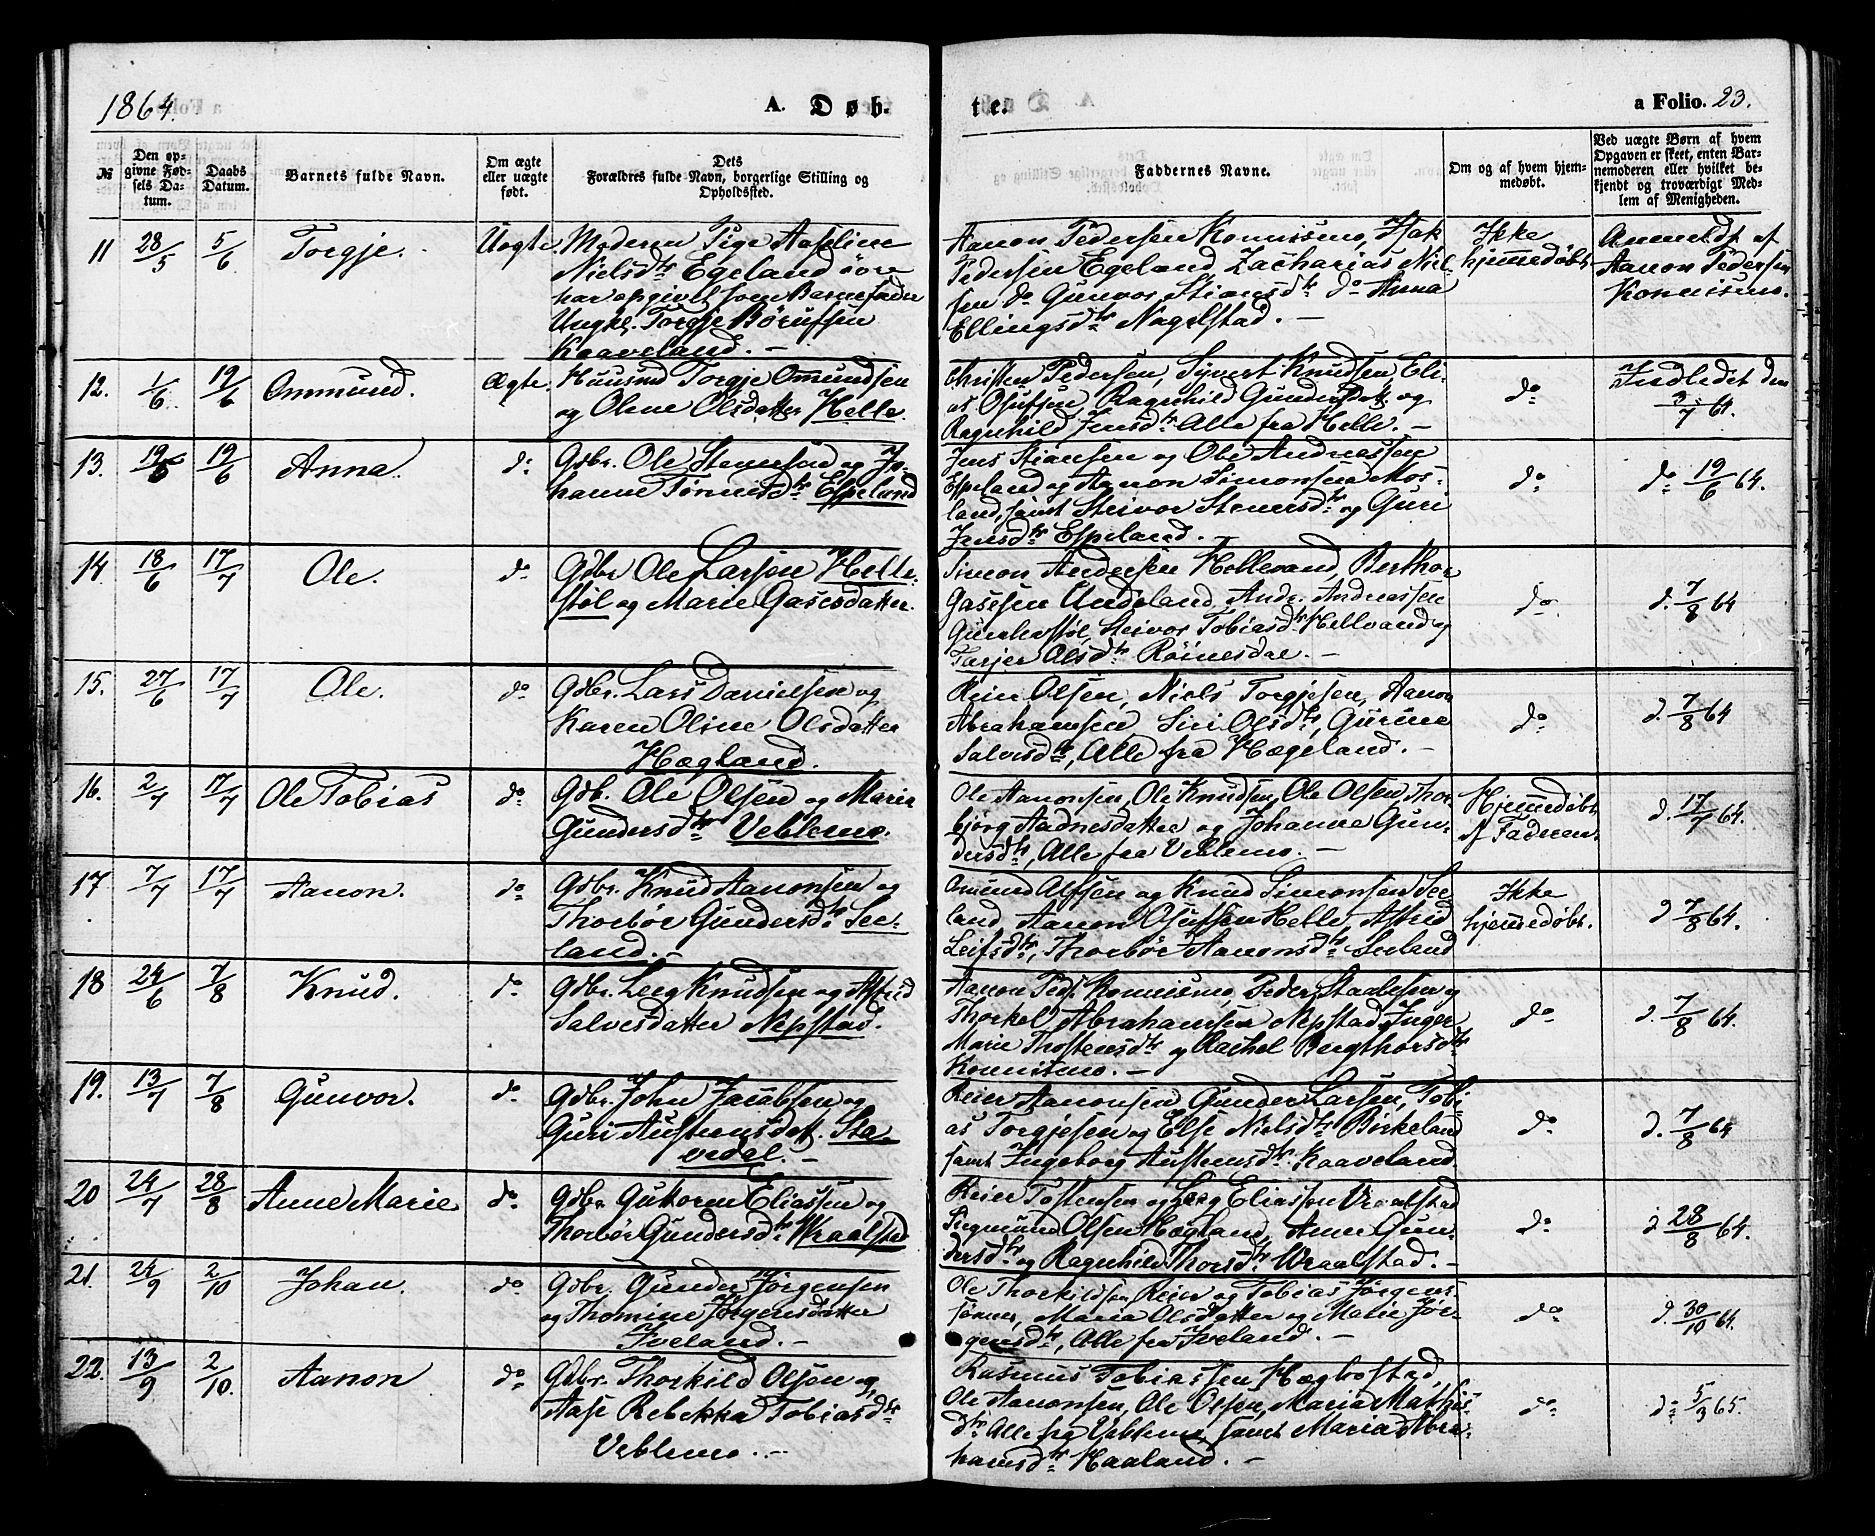 1864.
A. Døb-
te.
a Folio. 23.
№
Den op-
givne Fød-
sels Da-
tum.
Daabs
Datum.
Barnets fulde Navn.
Om ægte
eller uægte
født.
Dets
Forældres fulde Navn, borgerlige Stilling og
Opholdssted.
Faddernes Navne.
Om og af hvem hjem-
medøbt.
Ved uægte Børn af hvem
Opgaven er skeet, enten Bar-
nemoderen eller hvilket be-
kjendt og troværdigt Med-
lem af Menigheden.
11 28/5 5/6 Torgje. Uægte. Moderen Pige Aaseline
Nielsdtr Egeland søre
har opgivet som Barnefader
Ungkl. Torgje Børufsen
Kaaveland. —
Aanon Pedersen Konnismo, Isak
Pedersen Egeland, Zacharias Niel-
sen do Gunvor Stiansdtr do Anna
Ellingsdtr Nagelstad. —
Ikke
hjemmedøbt.
Anmeldt af
Aanon Pedersen
Konnismo.
12. 1/6 19/6 Ommund. Ægte. Huusmd Torgje Omundsen
og Olene Olsdatter Helle.
Christen Pedersen, Syvert Knudsen, Eli-
as Osufsen, Ragnhild Gundersdtr. og
Ragnhild Jensdtr Alle fra Helle. —
do
Indledet den
3/7 64.
13. 19/5 19/6 Anna. do Gdbr. Ole Stenersen og Jo-
hanne Tønnisdtr Espeland
Jens Stiansen og Ole Andreassen
Espeland og Aanon Simonsen Mos-
land, samt Steivor Stenersdtr og Guri
Jensdtr Espeland. —
do
do 19/6 64.
14. 18/6 17/7 Ole. do Gdbr Ole Larsen Helle-
støl og Marie Gasesdatter.
Simon Andersen Hellevand, Berthor
Gasesen Undeland, Andr. Andreassen
Steivor Tobiasdtr Hellvand og
Tarjer Olsdtr Røinesdal. —
do
d. 7/8 64
15. 27/6 17/7 Ole. do Gdbr. Lars Danielsen og
Karen Oline Olsdatter
Hægland.
Reier Olsen, Niels Torgjesen, Aanon
Abrahamsen, Siri Olsdtr, Gurine
Salvesdtr, Alle fra Hægeland. —
do
d. 7/8 64
16. 2/7 17/7 Ole Tobias do Gdb. Ole Olsen og Maria
Gundersdtr Veblemo.
Ole Aanonsen, Ole Knudsen, Ole Olsen, Thor-
bjørg Aadnesdatter og Johanne Gun-
dersdtr, Alle fra Veblemo. —
Hjemmedøbt
af Faderen.
d. 17/7 64.
17 7/7 17/7 Aanon. do Gdbr. Knud Aanonsen og
Thorbør Gundersdtr See-
land. —
Omund Alfsen og Knud Simonsen See-
land, Aanon Osufsen Helle, Astrid
Leifsdtr, Thorbör Aanonsdtr Seeland
Ikke
hjemmedøbt.
d 7/8 64.
18 24/6 7/8 Knud. do Gdbr. Leeg Knudsen og Astrid
Salvesdatter Nepstad.
Aanon Peds. Konnismo, Peder Staalesen og
Thorkel Abrahamsen Nepstad, Inger
Marie Thostensdtr og Rachel Bergthorsdtr
Konnismo. —
do
d. 7/8 64.
19. 13/7 7/8 Gunvor. do Gdbr. John Jacobsen og
Guri Austensdat. Sta-
vedal. —
Reier Aanonsen, Gunder Larsen, Tobi-
as Torgjesen og Else Nielsdtr Birkeland
samt Ingeborg Austensdtr Kaaveland
do
d. 7/8 64
20 24/7 28/8 Anne Marie do Gdbr. Gutorm Eliassen og
Thorbør Gundersdtr Wraalstad
Reier Tostensen og Leeg Eliassen Vraalstad
Siegmund Olsen Hægland, Anne Gun-
dersdtr og Ragnhild Thorsdtr Wraalstad. —
do
d 28/8 64.
21. 24/9 2/10 Johan. do Gdbr. Gunder Jørgensen
og Thomine Jørgensdatter
Iveland. —
Ole Thorkildsen, Reier og Tobias Jørgens-
sønner, Maria Olsdatter og Marie Jør-
gensdtr, Alle fra Iveland. —
do
d. 30/10 64.
22. 13/9 2/10. Aanon do Gdbr. Thorkild Olsen og
Aase Rebekka Tobiasdtr
Veblemo. —
Rasmus Tobiassen Hægbostad,
Ole Aanonsen, Ole Olsen, Maria Mathis-
dtr Alle fra Veblemo, samt Maria Abra-
hamsdtr Haaland. —
do
do 5/3 65.